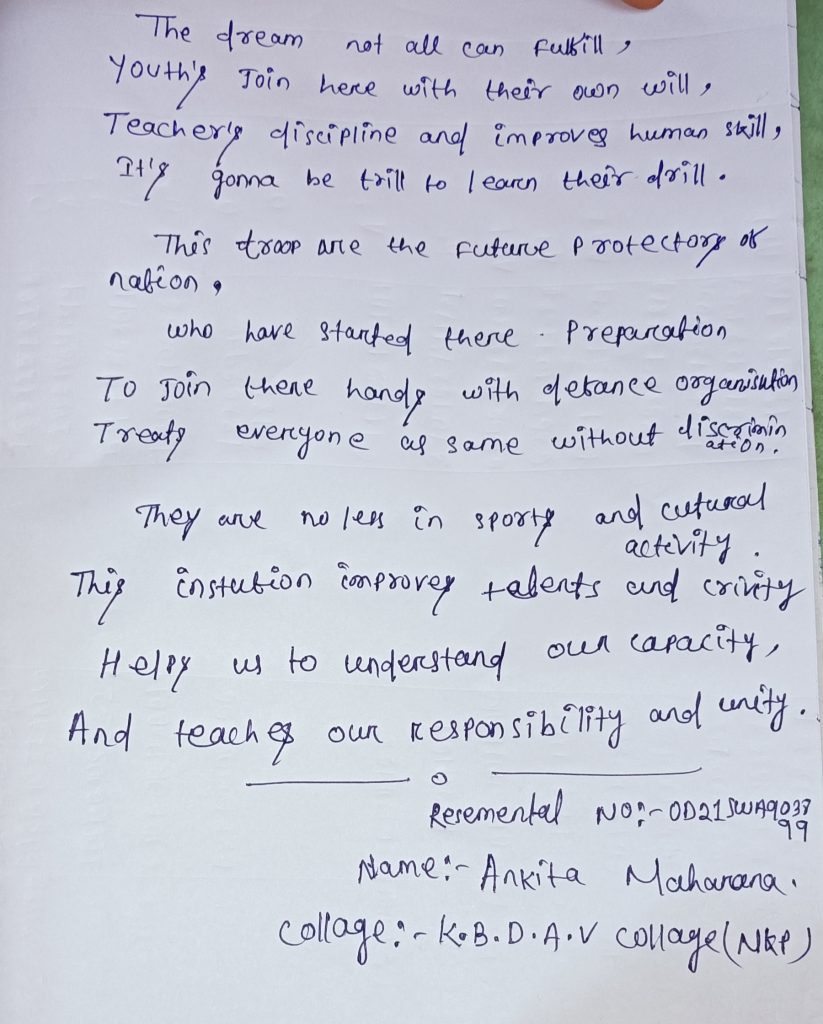 The dream not all can fulfill,
Youth's Join here with their own will,
Teacher's discipline and improves human skill,
It's gonna be trill to learn their drill.
This troop are the future Protectors of
nation,
who have started there Preparation
To Join there hands with defance organisation
Treats everyone as same without discrimin
ation.
They are no less in sports and cutural
activity.
This instution improves talents and crivity
Helps us to understand our capacity,
And teaches our responsibility and unity.
o
Resemental NO:- OD21SWA9037
99
Name:- Ankita Maharana.
Collage:- K.B.D.A.V collage(NKP)